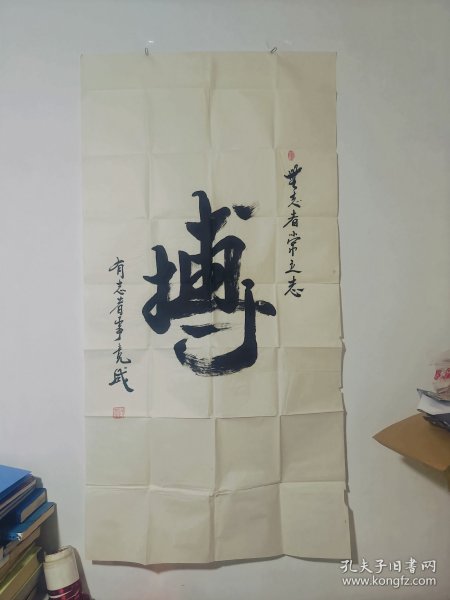 無志者常立志
搏
有志者事竟成
孔夫子旧书网
www.kongfz.com